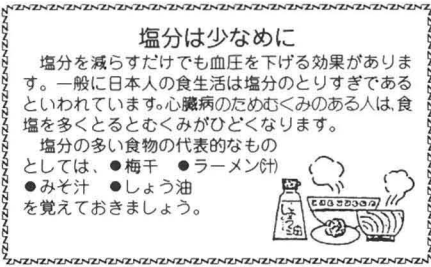 塩分は少なめに
塩分を減らすだけでも血圧を下げる効果がありま
す。一般に日本人の食生活は塩分のとりすぎである
といわれています。心臓病のためむくみのある人は、食
塩を多くとるとむくみがひどくなります。
塩分の多い食物の代表的なもの
としては、●梅干 ●ラーメン(汁)
●みそ汁 ●しょう油
を覚えておきましょう。
しょう油